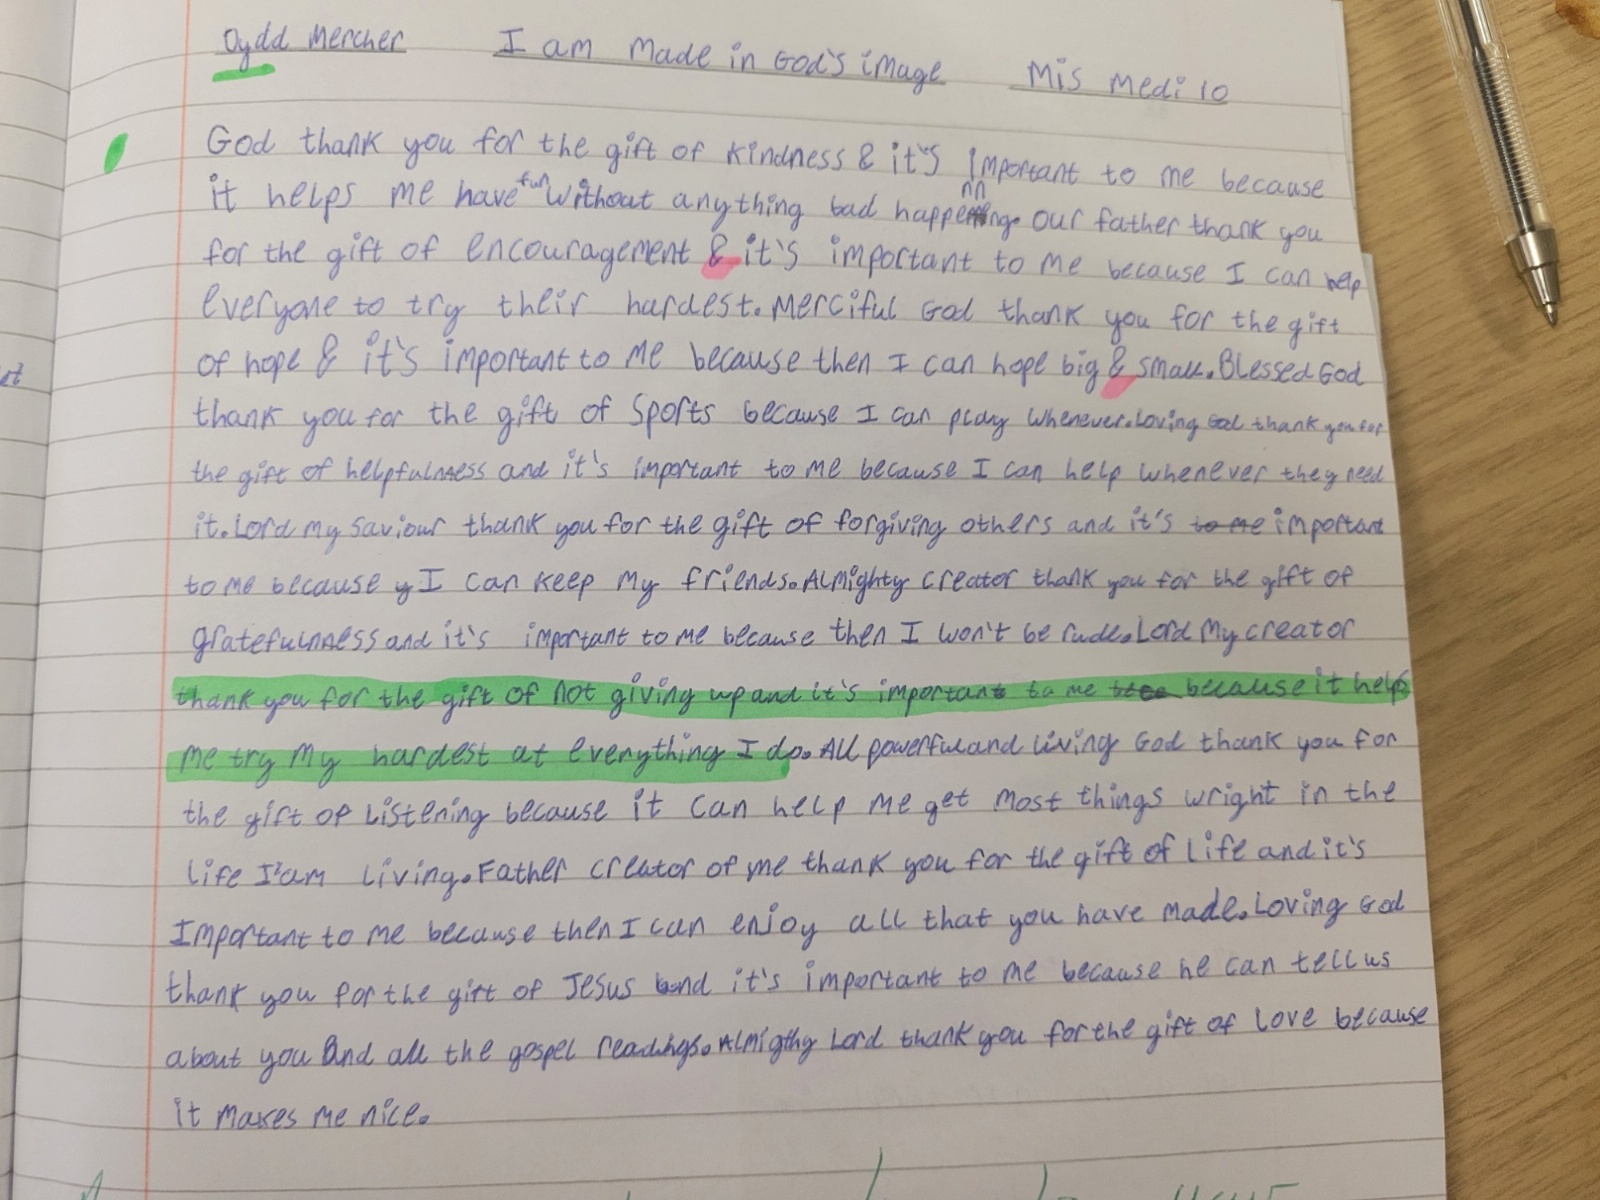 Dydd Mercher I am made in God's image Mis Medi 10
God thank you for the gift of kindness & it's important to me because
it helps me have fun without anything bad happening. Our father thank you
for the gift of encouragement & it's important to me because I can help
everyone to try their hardest. Merciful God thank you for the gift
of hope & it's important to me because then I can hope big & small. Blessed God
thank you for the gift of sports because I can play whenever. Loving God thank you for
the gift of helpfulness and it's important to me because I can help whenever they need
it. Lord my saviour thank you for the gift of forgiving others and it's to me important
to me because y I can keep my friends. Almighty creator thank you for the gift of
gratefulness and it's important to me because then I won't be rude. Lord my creator
thank you for the gift of not giving up and it's important to me because it helps
me try my hardest at everything I do. All powerful and living God thank you for
the gift of listening because it can help me get most things wright in the
life I'am living. Father creator of me thank you for the gift of life and it's
Important to me because then I can enjoy all that you have made. Loving God
thank you for the gift of Jesus and it's important to me because he can tell us
about you and all the gospel readings. Almigthy Lord thank you for the gift of love because
it makes me nice.